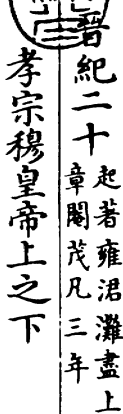 晉紀二十
起著雍涒灘盡上
章閹茂凡三年
孝宗穆皇帝上之下